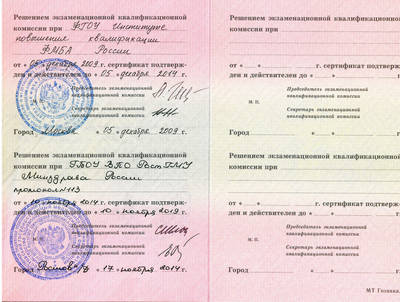 Решением экзаменационной квалификационной
комиссии при ФГОУ Институте
повышения квалификации
ФМБА России
от «05» декабря 2009 г. сертификат подтверж-
ден и действителен до «05» декабря 2014
Председатель экзаменационной
квалификационной комиссии
М. П.
Секретарь экзаменационной
квалификационной комиссии
Город Москва 05 декабря 2009
Решением экзаменационной квалификационной
комиссии при ГБОУ ВПО РостГМУ
Минздрава России
протокол №113
от «10» ноября 2014 г. сертификат подтверж-
ден и действителен до «10» ноября 2019
Председатель экзаменационной
квалификационной комиссии
М. П.
Секретарь экзаменационной
квалификационной комиссии
Город Ростов н/Д «17» ноября 2014 г.
Решением экзаменационной квалификационной
комиссии при
от « » г. сертификат подтверж-
ден и действителен до « »
Председатель экзаменационной
квалификационной комиссии
М. П.
Секретарь экзаменационной
квалификационной комиссии
Город « »
Решением экзаменационной квалификационной
комиссии при
от « » г. сертификат подтверж-
ден и действителен до « »
Председатель экзаменационной
квалификационной комиссии
М. П.
Секретарь экзаменационной
квалификационной комиссии
Город « »
МТ Гознака.